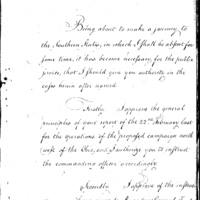 Being about to make a journey to
the Southern States, in which I shall be absent for
some time, it has become necessary for the public
service, that I should give you authority in the
cases herein after named.
Firstly I approve the general
principles of your report of the 22nd February last
for the operations of the proposed campaign north
west of the Ohio, and I authorize you to instruct
the commanding officer accordingly
Secondly I approve of the